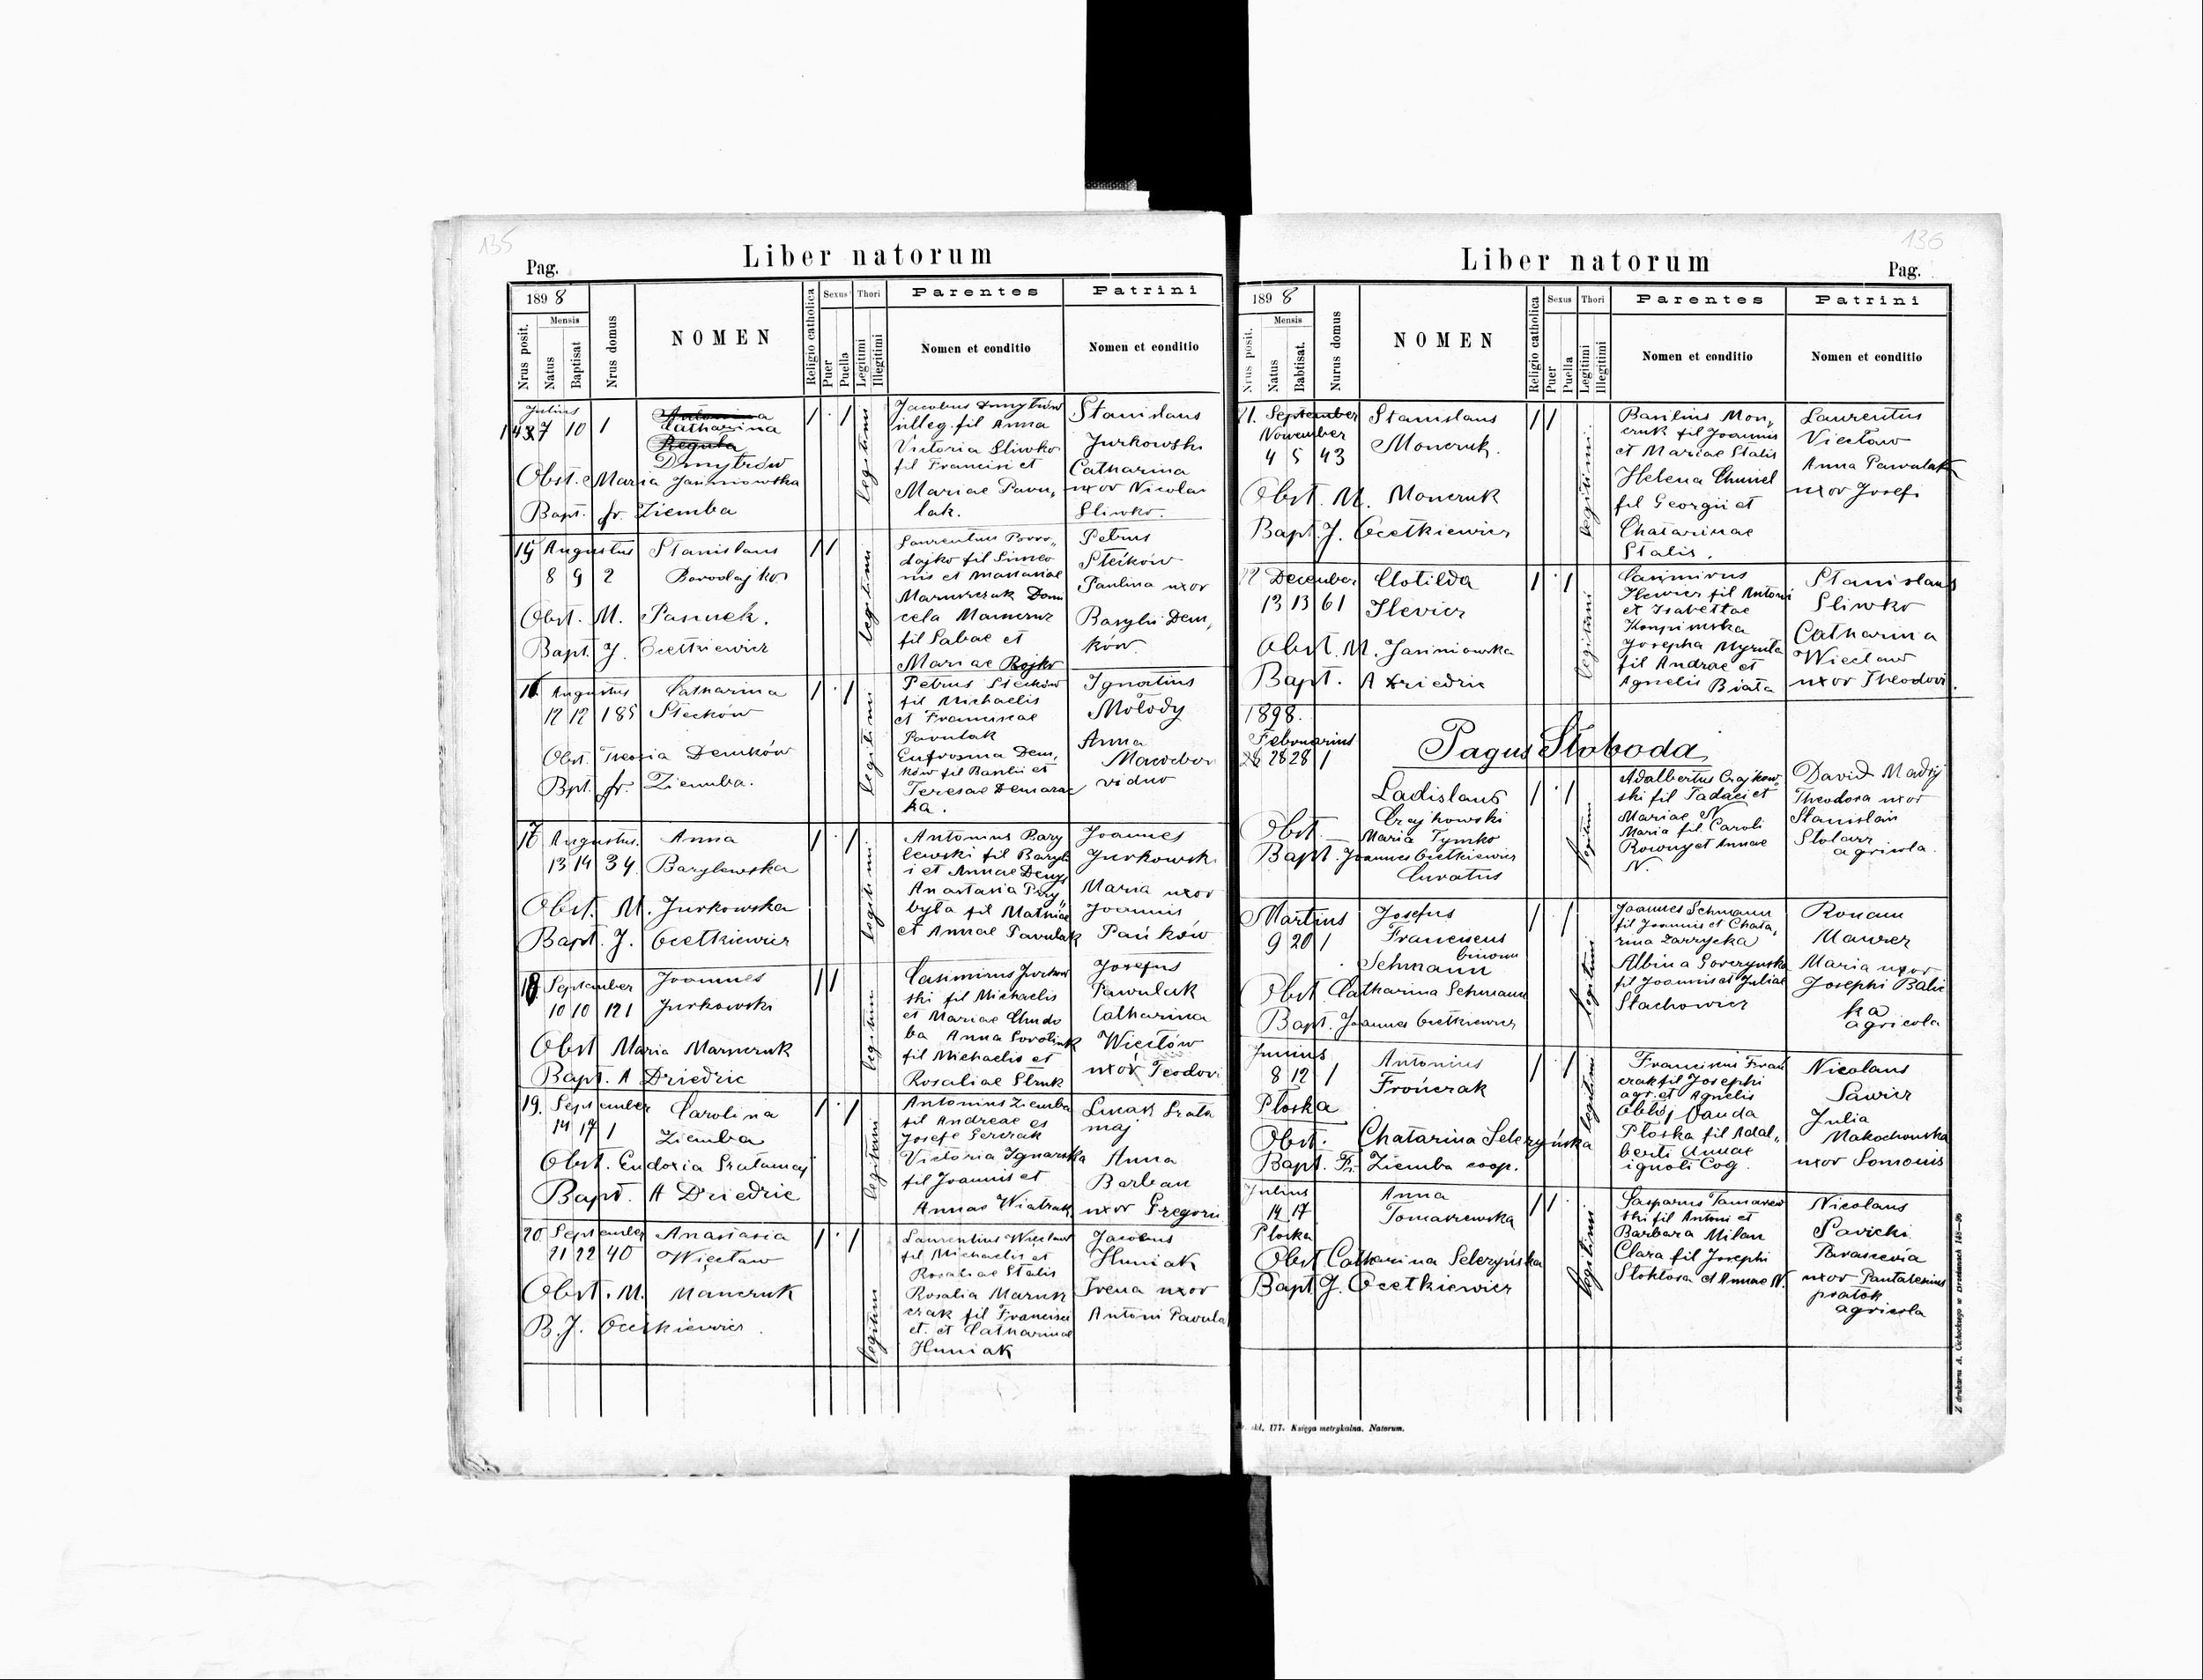 135
Pag.
Liber natorum
1898
Mensis
Nrus posit.
Natus
Baptisat
Nrus domus
NOMEN
Religio catholica
Sexus
Puer
Puella
Thori
Legitimi
Illegitimi
Parentes
Nomen et conditio
Patrini
Nomen et conditio
Julius
7 10 1
Catharina
Dmytrów
Obst. Maria Jasiniowska
Bapt. fr. Ziemba
legitimi
Jacobus Dmytrów
illeg. fil Anna
Victoria Sliwko
fil Francisi et
Mariae Pavu„
lak.
Stanislaus
Jurkowski
Catharina
uxor Nicolai
Sliwko.
15 Augustus
8 9 2
Stanislaus
Borodajko
Obst. M. Panuek.
Bapt. J. Ocetkiewicz
legitimi
Laurentius Boro„
dajko fil Simeo
nis et
cela
fil Sabae et
Mariae Bojko
Petrus
Stećków
Paulina uxor
Basylii Dem„
ków.
16 Augustus
12 12 185
Catharina
Stecków
Obst. Theosia Demków
Bpt. fr. Ziemba.
legitimi
Petrus Stecków
fil Michaelis
et Franciscae
Pavulak
Eufrosina Dem„
ków fil Basilii et
Teresae
ka.
Ignatius
Mołody
Anna
viduo
17 Augustus.
13 14 34
Anna
Barylewska
Obst. M. Jurkowska
Bapt. J. Ocetkiewicz
legitimi
Antonius Bary
lewski fil Baryli
i et Annae Denys
Anastasia Przy
była fil Mathiae
et Annae Pavulak
Joannes
Jurkowski
Maria uxor
Joannis
Pańków
18 September
10 10 121
Joannes
Jurkowski
Obst Maria Marnczuk
Bapt. A Dziedzic
legitimi
Casimirus Jurkow
ski fil Michaelis
et Mariae Chudo
ba Anna
fil Michaelis et
Rosaliae Struk
Josefus
Pawulak
Catharina
Wiecłów
uxor Teodori
19. September
14 17 1
Carolina
Ziemba
Obst. Eudoxia Sratamaj
Bapt. A Dziedzic
legitimi
Antonius Ziemba
fil Andreae et
Josefe
Victoria Ignarska
fil Joannis et
Annae Wiatrak
Lucas Srata
maj
Anna
Barban
uxor Gregorii
20 September
21 22 40
Anastasia
Więcław
Obst. M. Manczuk
B. J. Ocetkiewicz.
legitimi
Laurentius Więcław
fil Michaelis et
Rosaliae Stalis
Rosalia Marusz
czak fil Francisci
et. et Catharinae
Huniak
Jacobus
Huniak
Irena uxor
Antoni Pavula
Liber natorum
136
Pag.
1898
Mensis
Nrus posit.
Natus
Babtisat.
Nurus domus
NOMEN
Religio catholica
Sexus
Puer
Puella
Thori
Legitimi
Illegitimi
Parentes
Nomen et conditio
Patrini
Nomen et conditio
21. September
November
4 5 43
Stanislaus
Monczuk.
Obst. M. Monczuk
Bapt. J. Ocetkiewicz
legitimi
Basilius Mon„
czuk fil Joannis
et Mariae Stalis
Helena Chmiel
fil Georgii et
Chatarinae
Stalis.
Laurentus
Viecław
Anna Pawulak
uxor Josefi
22 December
13 13 61
Clotilda
Ilevicz
Obst. M. Jasiniowska
Bapt. A Dziedzic
legitimi
Casimirus
Ilewicz fil Antoni
et Isabellae
Josepha Myzuła
fil Andrae et
Agnelis Biała
Stanislaus
Sliwko
Catharina
Wiecław
uxor Theodori.
1898.
Februarius
28 28 1
Pagus Słoboda
Ladislaus
Czajkowski
Obst. Maria Tymko
Bapt. Joannes Ocetkiewicz
Curatus
legitimi
Adalbertus Czajkow
ski fil Tadaei et
Mariae N
Maria fil Caroli
Rowny et Annae
N.
David Madij
Theodora uxor
Stanislai
Stolarz
agricola.
Martius
9 20 1
Josefus
Franciscus
binom
Sehmann
Obst. Catharina Sehmann
Bapt. Joannes Ocetkiewicz
legitimi
Joannes Sehmann
fil Joannis et Chata„
rina Zarzycka
Albina Gorczynska
fil Joannis et Juliae
Stachowicz
Roman
Maurer
Maria uxor
Josephi Balic
ka
agricola
Junius
8 12 1
Płoska
Antonius
Frończak
Obst. Chatarina Selezyńska
Bapt. Fr. Ziemba coop.
legitimi
Franciscus Froń
czak fil Josephi
agr. et Agnelis
Obłój Vanda
Płoska fil Adal„
berti Annae
ignoti Cog.
Nicolaus
Sawicz
Julia
Makochowska
uxor Somonis
Julius
14 17
Płoska
Anna
Tomaszewska
Obst Catharina Selezyńska
Bapt J. Ocetkiewicz
legitimi
Gasparus Tomaszew
ski fil Antoni et
Barbara Milan
Clara fil Josephi
Stokłosa et Annae N.
Nicolaus
Savicki
Parascevia
uxor Pantalenius
piatok
agricola
177. Księga metrykalna. Natorum.
Z drukarni A. Cichockiego w Brzeżanach